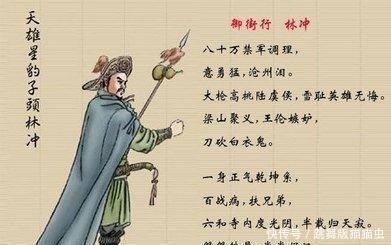 天雄星豹子頭林冲
御街行　林冲
八十万禁军调理，
意勇猛，沧州泪。
大枪高桃陆虞侯，雷耻英雄无悔。
梁山聚义，王伦嫉妒，
刀砍白衣鬼。
一身正气乾坤系，
百战病，扶兄弟，
六和寺内度光阴，半载归天寂。
快传号/跳舞版猫猫虫